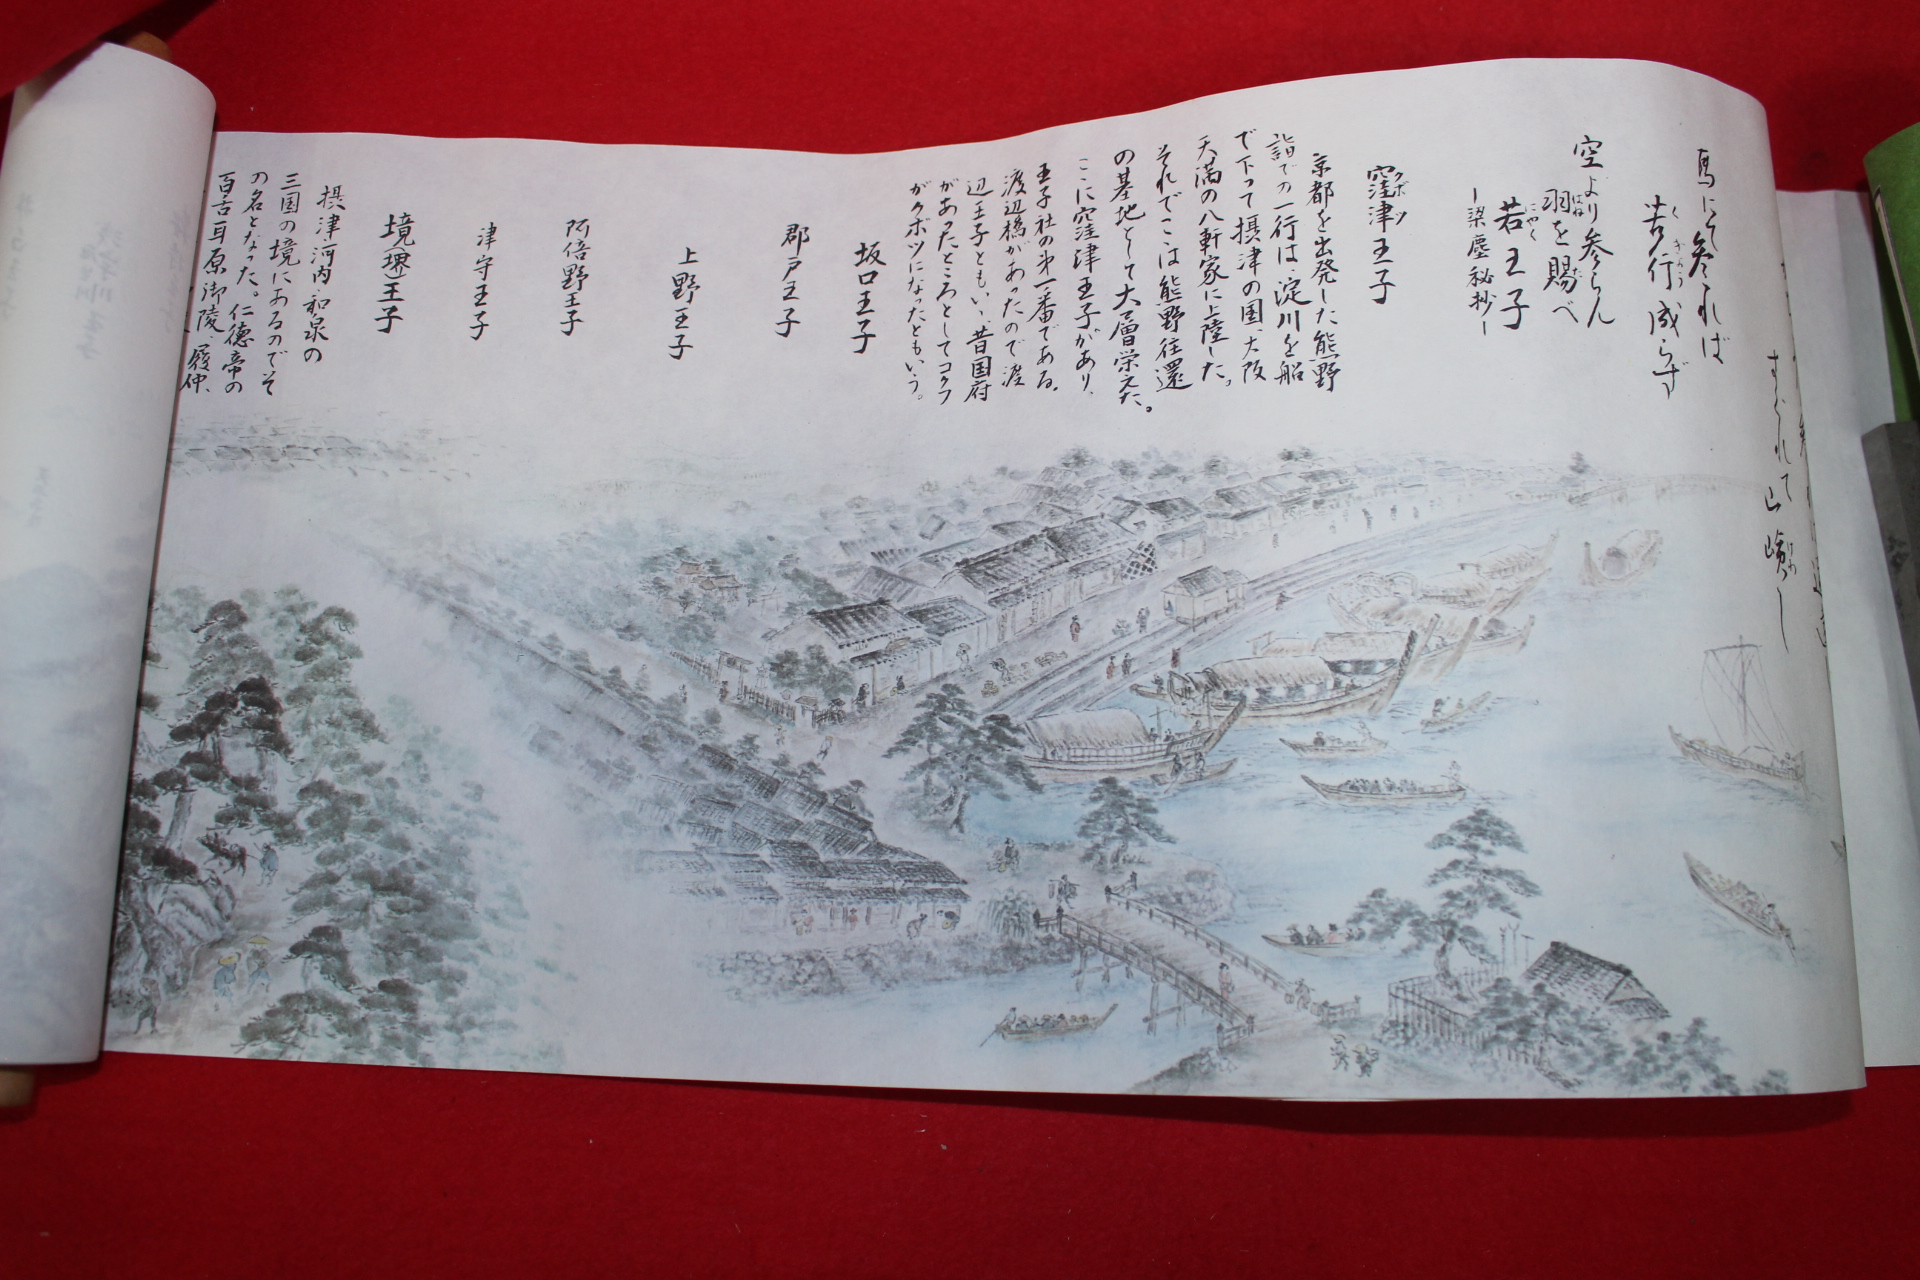 すぐれて山嶮し
馬にて参れば
苦行成らず
空より参らん
羽を賜べ
若王子
ー梁塵秘抄ー
窪津王子
クボツ
京都を出発した熊野
詣での一行は、淀川を船
で下って摂津の国、大阪
天満の八軒家に上陸した。
それでここは熊野往還
の基地として大層栄えた。
ここに窪津王子があり、
王子社の第一番である。
渡辺橋があったので渡
辺王子ともいい、昔国府
があったところとしてコクフ
がクボツになったともいう。
坂口王子
郡戸王子
上野王子
阿倍野王子
津守王子
境(堺)王子
摂津河内和泉の
三国の境にあるのでそ
の名となった。仁徳帝の
百舌耳原御陵、履仲、